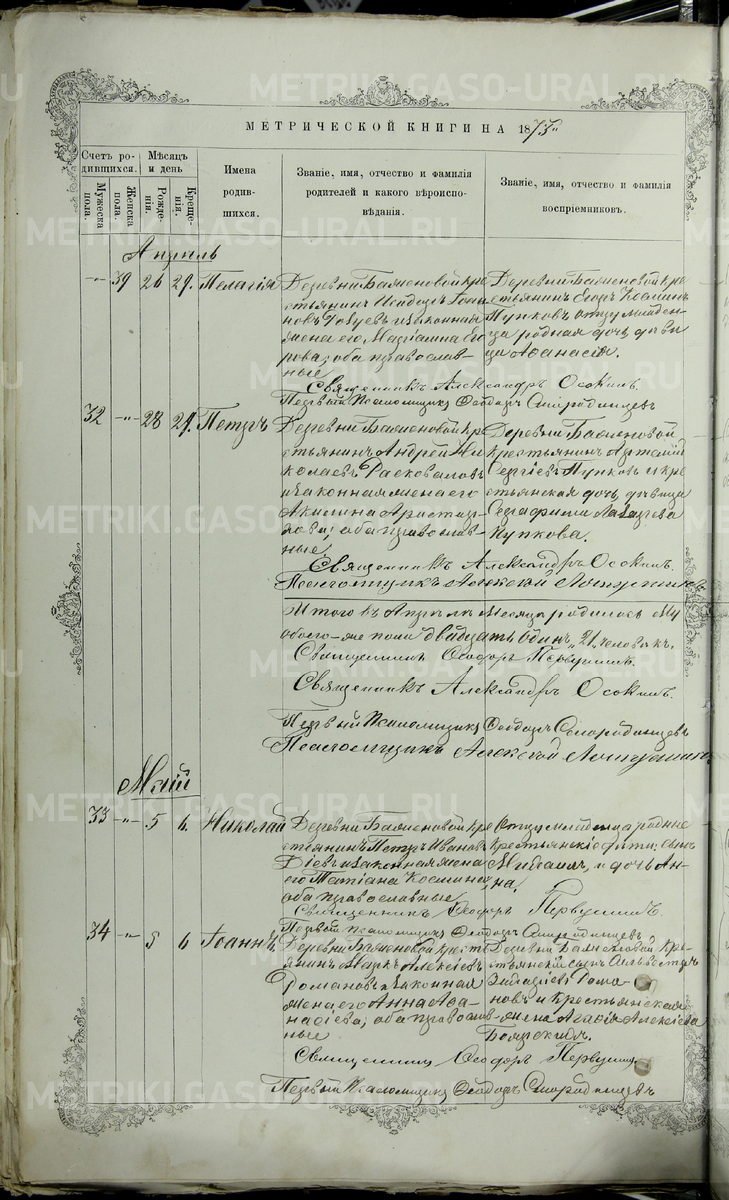 МЕТРИЧЕСКОЙ КНИГИ НА 1875
Счетъ родившихся.
Мѣсяцъ и день
Имена родившихся.
Званіе, имя, отчество и фамилія родителей и какого вѣроисповѣданія.
Званіе, имя, отчество и фамилія воспріемниковъ.
Мужеска пола.
Женска пола.
Рожденія.
Крещенія.
Апрѣль
„ 39 26 29. Пелагія
Деревни Баженовой кре
стьянинъ Исидоръ Іоан
новъ и законная
жена его Маріанна Его
рова; оба православ-
ные
Деревни Баженовой кре
стьянинъ Егоръ Козминъ
Пупковъ отцу младен
ца родная дочь дѣви
ца Афанасія.
Священникъ Александръ Осокинъ.
Первый Псаломщикъ Ѳеодоръ Смородинцевъ
32 „ 28 29. Петръ
Деревни Баженовой кре
стьянинъ Андрей Ни
колаевъ Расковаловъ
и законная жена его
Акилина Аристар
хова; оба православ-
ные
Деревни Баженовой
крестьянинъ Артемій
Сергіевъ Пупковъ и кре
стьянская дочь дѣвица
Серафима Лазарева
Пупкова.
Священникъ Александръ Осокинъ.
Псаломщикъ Алексѣй
Итого въ Апрѣлѣ Месяцѣ родилось
обоего-же пола двадцать одинъ „21„ человѣкъ.
Священникъ Ѳеодоръ Первушинъ.
Священникъ Александръ Осокинъ.
Первый Псаломщикъ Ѳеодоръ Смородинцевъ
Псаломщикъ Алексѣй
Маій
33 „ 5 6. Николай
Деревни Баженовой кре
стьянинъ Петръ Ивановъ
и законная жена
его Татіана Космина,
оба православные
Отцу младенца родные
крестьянскіе дѣти: сынъ
Михаилъ, и дочь Ан-
на,
Священникъ Ѳеодоръ Первушинъ.
Первый Псаломщикъ Ѳеодоръ Смородинцевъ
34 „ 5 6 Іоаннъ
Деревни Баженовой кресть
янинъ Маркъ Алексіевъ
Романовъ и законная
жена его Анна Аѳа-
насіева; оба православ-
ные
Деревни Баженовой кре-
стьянскій сынъ Сильвестръ
Рома-
новъ и Крестьянская
жена Агафія Алексіева
Боярскихъ.
Священникъ Ѳеодоръ Первушинъ
Первый Псаломщикъ Ѳеодоръ Смородинцевъ
METRIKI.GASO-URAL.RU